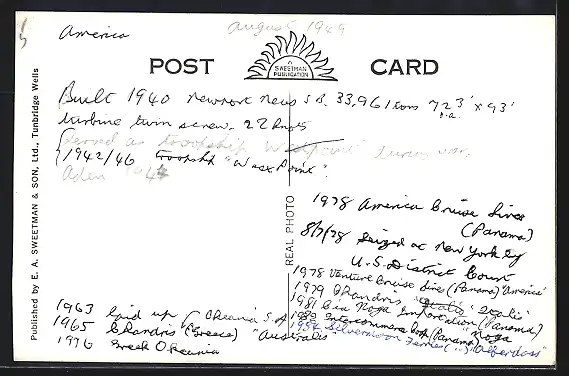 America
August 1949
POST CARD
A SWEETMAN PUBLICATION
Built 1940 Newport News S.B. 33,961 tons 723' x 93'
o.a.
turbine twin screw. 22 knots
Served as troopship Westpoint during war.
1942/46 troopship "West Point".
Aden 194
1978 America Cruise Lines
(Panama)
8/7/78 Seized at New York by
U.S. District Court
1978 Venture Cruise Line (Panama) "America"
1979 Chandris "Italis"
1981 Noga Importation (Panama)
1982 Intercommerce (Panama) "Noga"
1984 Silvermoon Ferries (") "Alferdoss"
1963 laid up
1965 Chandris (Greece) "Australis"
1976 Greek Oceania
Published by E. A. SWEETMAN & SON, Ltd., Tunbridge Wells
REAL PHOTO